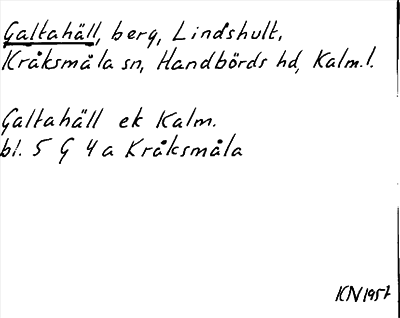 Galtahäll, berg, Lindshult,
Kråksmåla sn, Handbörds hd, Kalm.l.
Galtahäll ek Kalm.
bl. 5 G 4 a Kråksmåla
KN 1957